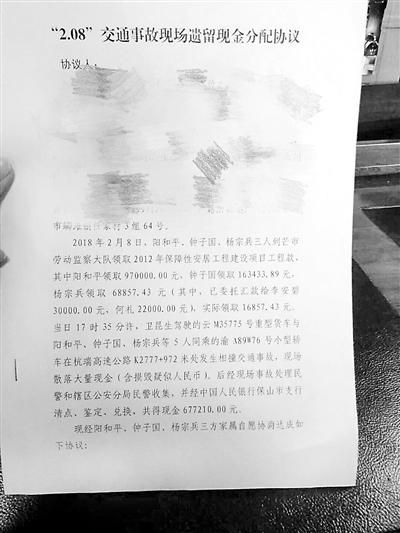 “2.08”交通事故现场遗留现金分配协议
协议人：
3组64号。
2018年2月8日，阳和平、钟子国、杨宗兵三人到芒市
劳动监察大队领取2012年保障性安居工程建设项目工程款，
其中阳和平领取970000.00元，钟子国领取163433.89元，
杨宗兵领取68857.43元（其中，已委托汇款给李安碧
30000.00元，何礼22000.00元），实际领取16857.43元。
当日17时35分许，卫昆生驾驶的云M35775号重型货车与
阳和平、钟子国、杨宗兵等5人同乘的渝A89W76号小型轿
车在杭瑞高速公路K2777+972米处发生相撞交通事故，现场
散落大量现金（含损毁疑似人民币）。后经现场事故处理民
警和辖区公安分局民警收集，并经中国人民银行保山市支行
清点、鉴定、兑换，共得现金677210.00元。
现经阳和平、钟子国、杨宗兵三方家属自愿协商达成如
下协议：